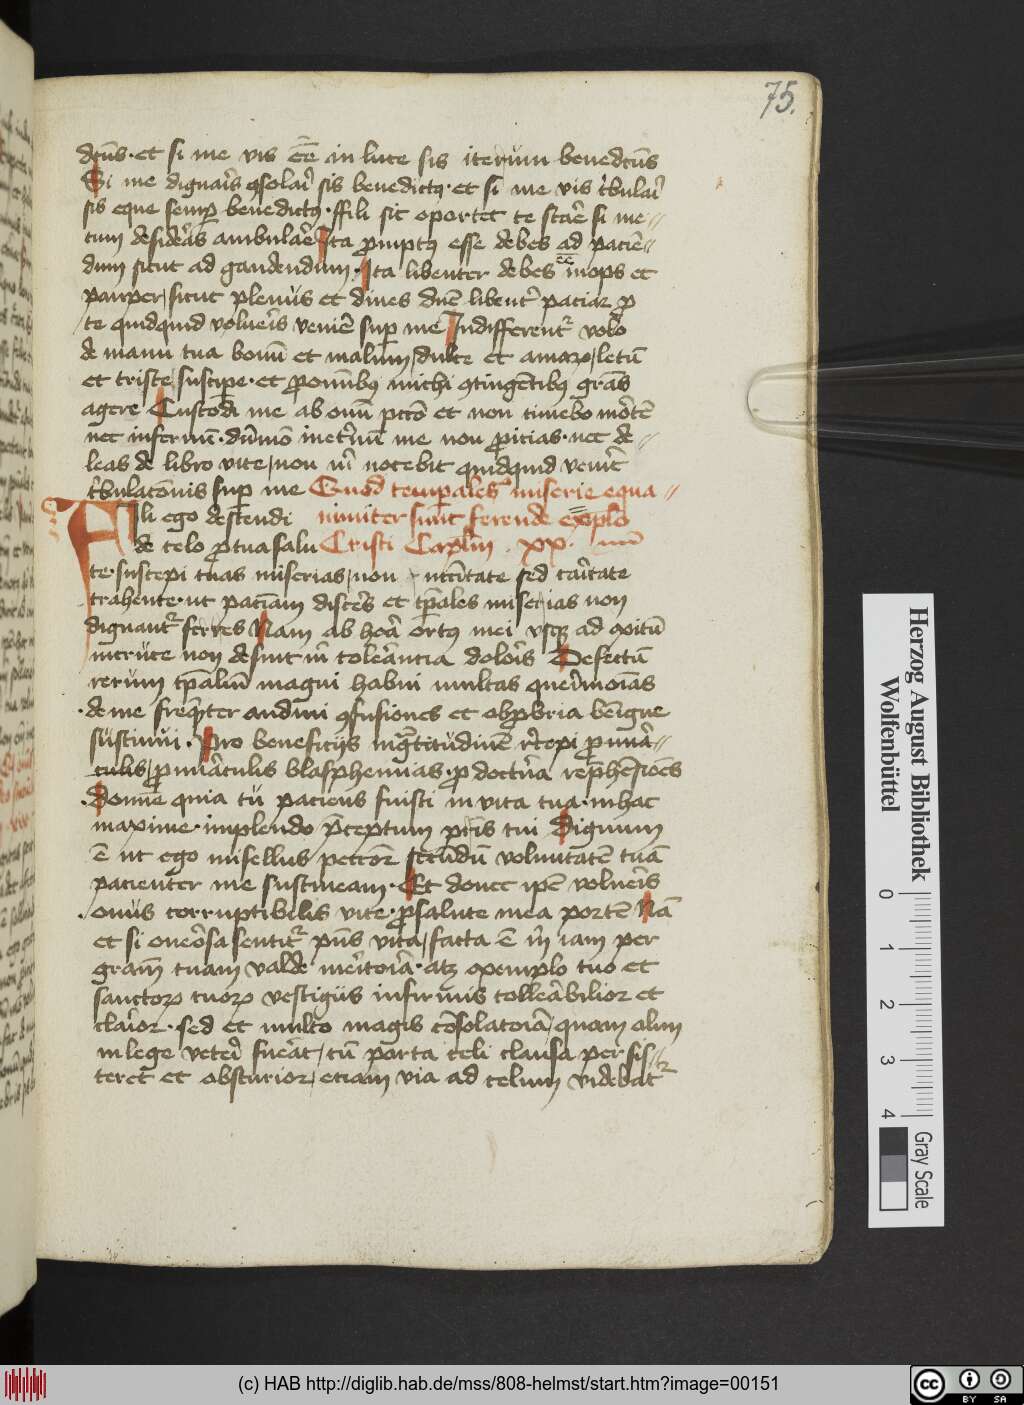 75.
dictus· et si me vis esse in luce sis iterum benedictus
Si me dignaris consolari sis benedictus· et si me vis tribulari
sis eque semper benedictus· ffili sic oportet te stare si me-
cum desideras ambulare Ita promptus esse debes ad pacien-
dum sicut ad gaudendum· Ita libenter debes esse inops et
pauper, sicut plenus et dives domine libenter paciar pro
te quidquid volueris venire super me Indifferenter volo
de manu tua bonum et malum, dulce et amarum, letum
et triste, suscipere· et pro omnibus michi contingentibus gracias
agere Custodi me ab omni peccato et non timebo mortem
nec infernum· dummodo ineternum me non proicias· nec de-
leas de libro vite, non michi nocebit quidquid venerit
tribulacionis super me Quod temporales miserie equa-
Fili ego descendi nimiter sunt ferende explo
de celo pro tua salu Cristi Capitulum . xx. iiii
te· suscepi tuas miserias, non necessitate sed caritate
trahente· ut pacienciam disceres et temporales miserias non
dignanter ferres Nam ab hora ortus mei, usque ad exitum
incruce non defuit michi tolerancia doloris Defectum
rerum temporalium magnum habui multas querimonias
·de me frequenter audivi confusiones et obprobria benigne
sustinui· Pro beneficiis ingratitudinem recepi pro mira-
culis, pro miraculis blasphemias· pro doctrina reprehensiones
·domine quia tu paciens fuisti in vita tua· inhac
maxime· implendo preceptum patris tui dignum
est ut ego misellus peccator secundum voluntatem tuam
pacienter me sustineam· Et donec ipse volueris
·onus corruptibilis vite· pro salute mea portem Nam
et si onerosa sentitur presens vita, facta est tamen iam per
graciam tuam valde meritoria· atque exemplo tuo et
sanctorum tuorum vestigiis infirmis tollerabilior et
clarior· sed et multo magis consolatoria, quam olim
in lege veteri fuerat, cum porta celi clausa persis-
teret et obscurior, eciam via ad celum videbatur
Herzog August Bibliothek
Wolfenbüttel
0 1 2 3 4
Gray Scale
(c) HAB http://diglib.hab.de/mss/808-helmst/start.htm?image=00151
cc BY SA